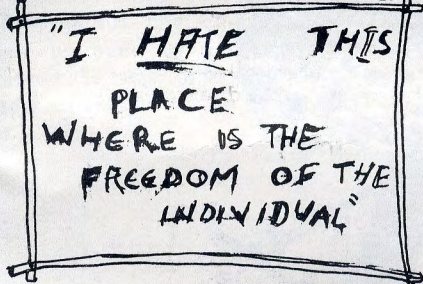 "I HATE THIS
PLACE
WHERE IS THE
FREEDOM OF THE
INDIVIDUAL"